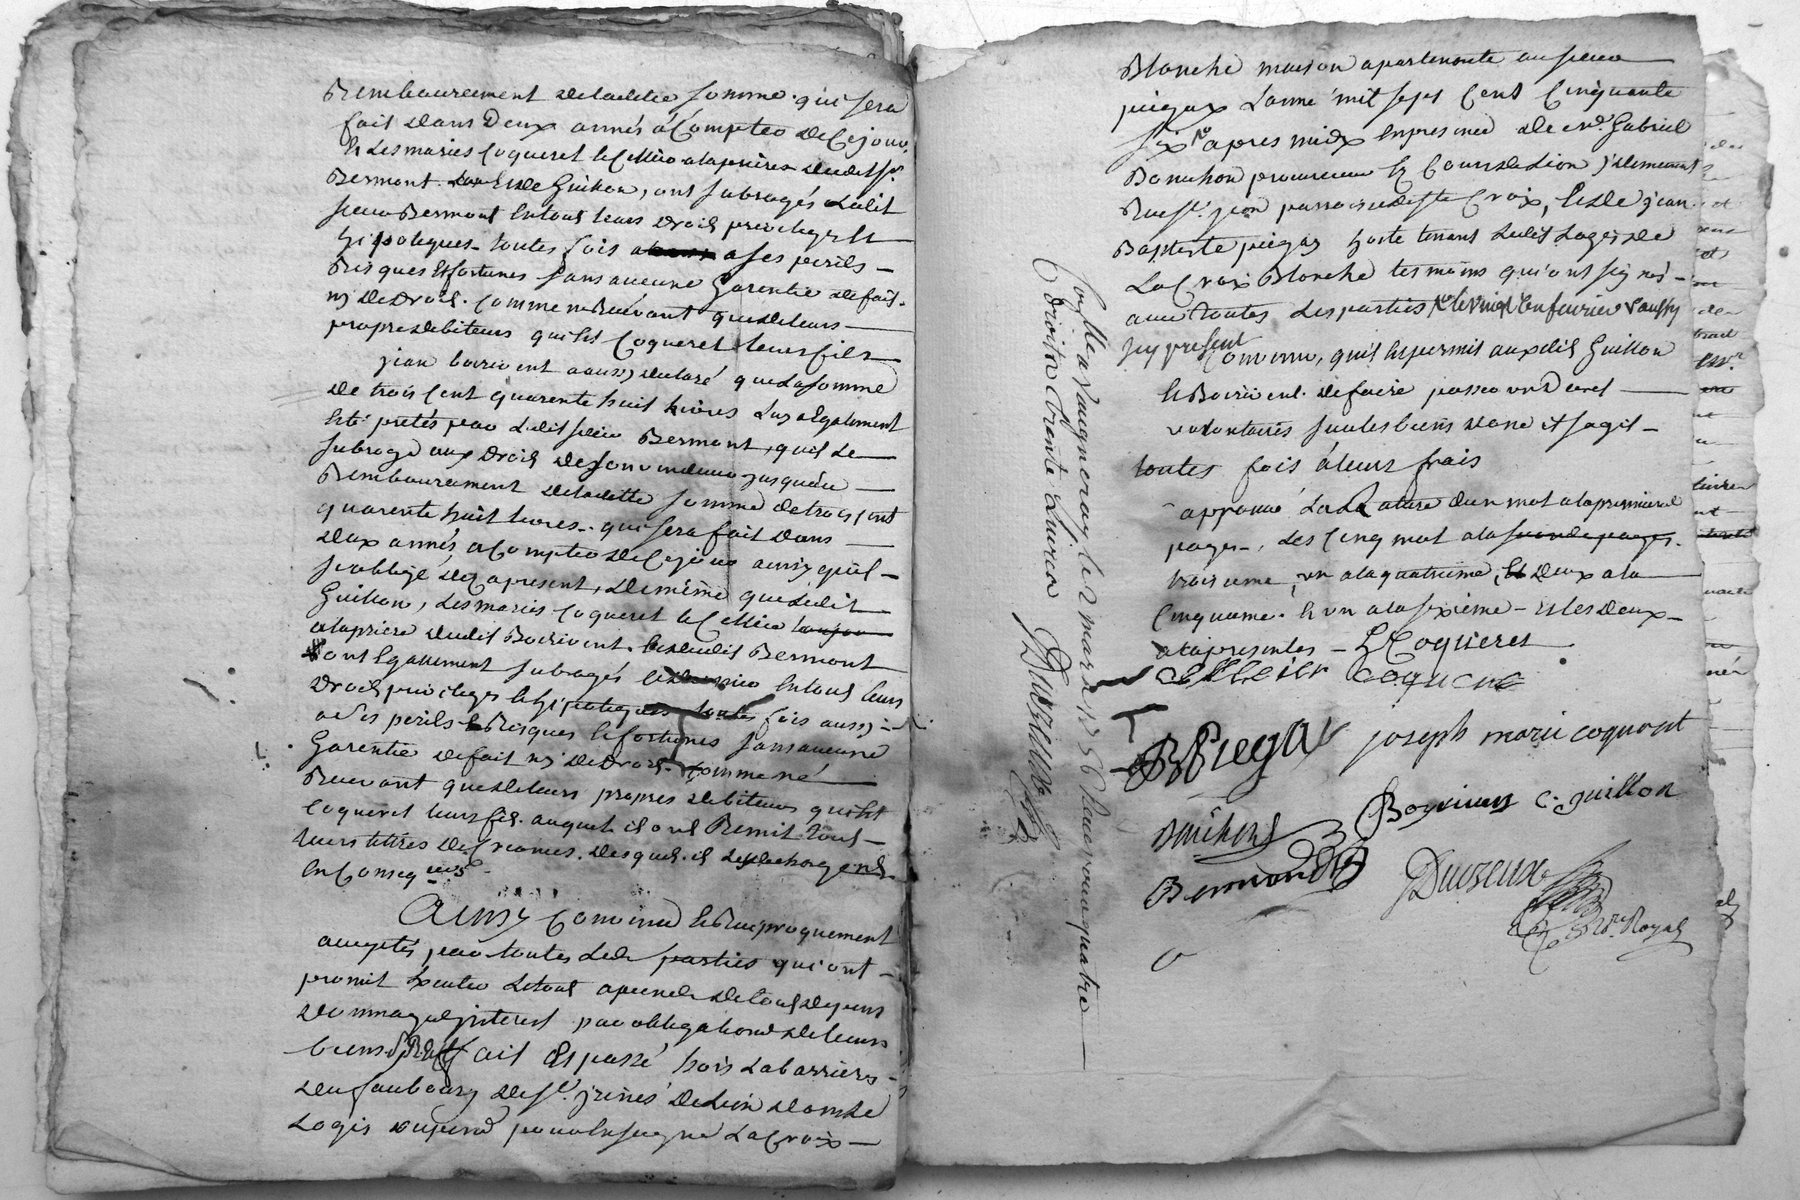 Remboursement de ladite somme qui sera
fait dans deux annés a Compter de Ce jour
Et les mariés Coqueret le Cellier a la prières dudit sr
Bermont Et de Guillon, ont subrogés Ledit
sieur Bermont En tous leurs droits privileges Et
hipoteques toutes fois a ses perils
Risques Et fortunes sans aucune Garentie de fait
ny de droit. Comme ne Recevant que de leurs
propres debiteurs qu'ils Coqueret leur fils
jean boirivent a aussy declaré que La somme
de trois Cent quarente huit livres Luy a Egalement
Eté pretés par Ledit sieur Bermont, qu'il Le
subroge aux droits de son vendeur jusqu'au
Remboursement de ladite somme de trois Cent
quarente huit livres qui sera fait dans
deux annés a Compter de Ce jour ainsy qu'il
s'oblige des a present, de même que Ledit
Guillon, Les mariés Coqueret le Cellier
a la priere dudit Boirivent Et dudit Bermont
ont Egallement subrogés En tous leurs
droits privileges Et hipoteques toutes fois aussy
a Ses perils Et Risques Et fortunes sans aucune
Garentie de fait ny de droit. Comme ne
Recevant que de leurs propres debiteurs qu'ils
Coqueret leur fils auquel ils ont Remit tous
leurs titres de Creances, desquels il Les decharge
En Conseq.ces
Ainsy Convenu Et Reciproquement
acceptés par toutes Lesd parties qui ont
promit Executer Le tout a peine de tous depens
dommages interest par obligations de leurs
biens fait Et passé hors La barrière
du faubourg de st jrinés de Lion dans Le
Logis ayant pour Enseigne La Croix
Blanche maison apartenante au sieur
piégay L'anné mil sept Cent Cinquante
six apres midy En presence de me Gabriel
Bonichon procureur Es Cours de Lion y demeurant
Rue st jean parroisse de ste Croix, Et de jean
Baptiste piégay hoste tenant Ledit Logis de
La Croix Blanche temoins qui ont signés
avec toutes Les parties Le vingt Cinq fevrier Vaussy
sy present
Convenu, qu'il Est permit auxdits Guillon
Et Boirivent de faire passer un Decret
volontaires sur les biens dont il s'agit
toutes fois à leurs frais
approuvé La Rature d'un mot a la premiere
page, Les Cinq mot a la seconde page
troisieme, un a la quatrieme, Et deux a la
Cinquieme Et un a la sixième Et les deux
a la presentes L Coqueret
Cellier Coqueret
B Piegay joseph marie coquerét
Bonichon Boyrivent C. guillon
Bermond Durieux
No.re Royal
Conlle a Vaugneray le 2 mars 1756 Reçu vingt quatre
Droits trente Livres Durieux